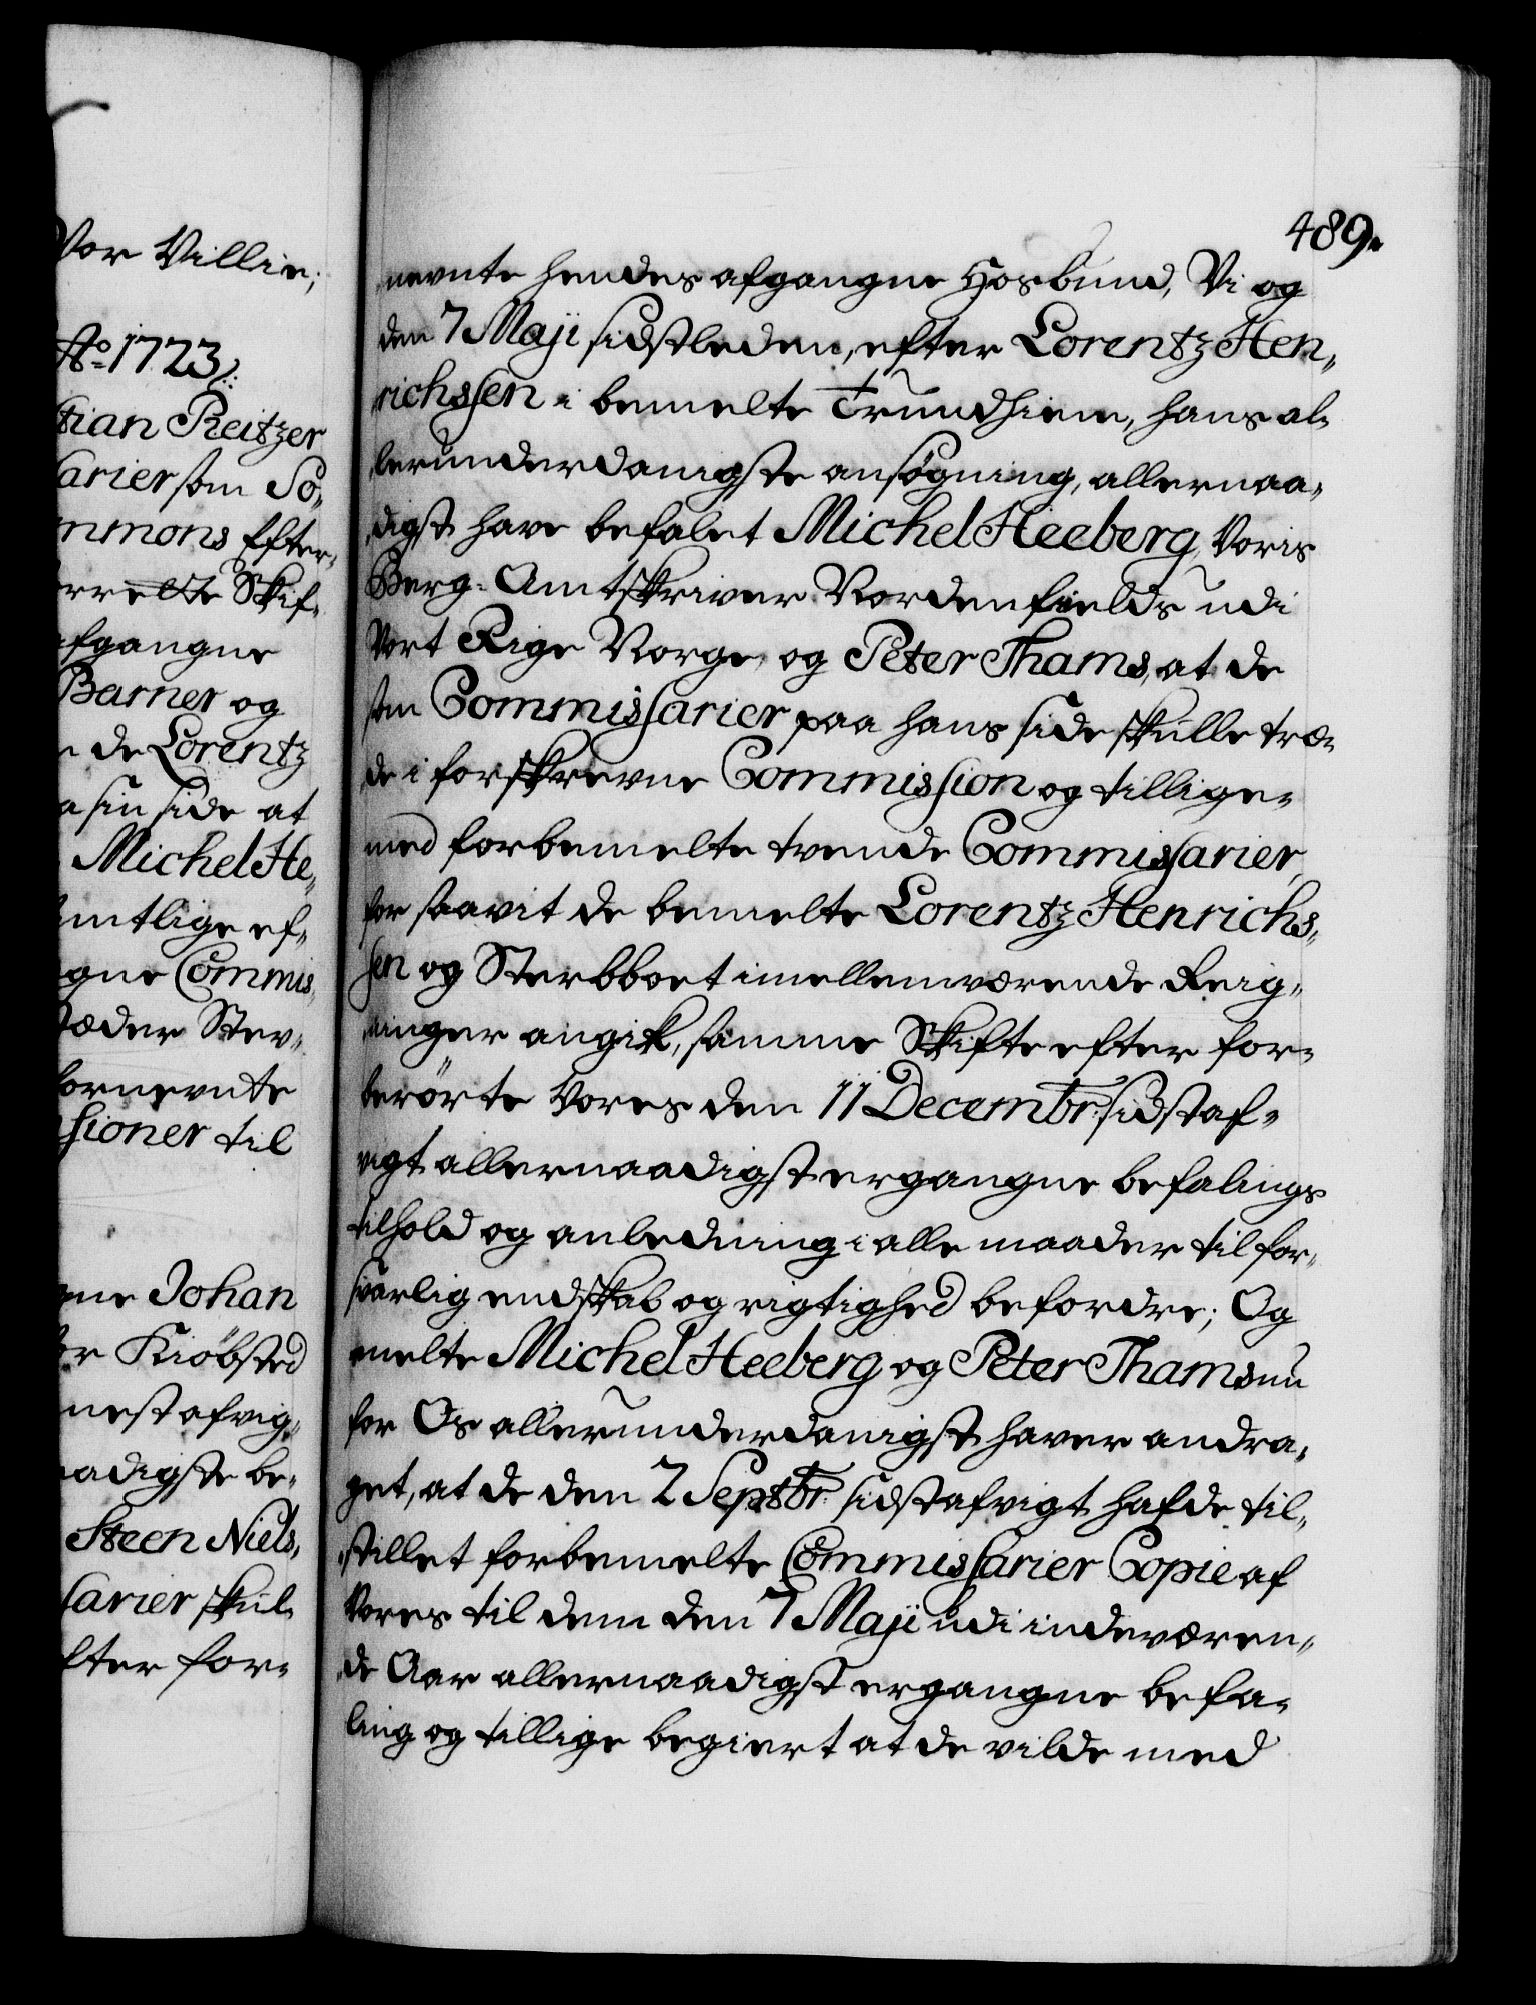 Vor Villie;
Ao 1723.
tian Reitzer
sarier som So„
mmons Efter„
rrette Skif„
afgangne
Barner og
de Lorentz
a sin side at
Michel He„
amtlige ef„
gne Commis„
tæder Stev„
fornevnte
sioner til
gne Johan
Kiöbsted
nest afvig„
aadigste be„
Steen Niels„
sarier skul„
fter for„
489.
nevnte hendes afgangne Hosbund, Vi og
den 7 Maji sidstleden, efter Lorentz Hen„
richssen i bemelte Trundhiem, hans al„
lerunderdanigste ansøgning, allernaa„
digst have befalet Michel Heeberg, Voris
Berg-Amtskriver Nordenfields udi
Vort Rige Norge, og Peter Thams, at de
som Commissarier paa hans side skulle træ„
de i forskrevne Commission og tillige„
med forbemelte tvende Commissarier,
for saavit de bemelte Lorentz Henrichs„
sen og Sterbboet imellemværende Reig„
ninger angik, samme Skifte efter for„
berörte Vores den 11 Decembr: sidstaf„
vigt allernaadigst ergangne befalings
tilhold og anledning i alle maader til for„
svarlig endskab og rigtighed befordre; Og
melte Michel Heeberg og Peter Thams nu
for Os allerunderdanigst haver andra„
get, at de den 2 Septbr: sidstafvigt hafde til„
stillet forbemelte Commissarier Copie af
Vores til dem den 7 Maji udi indeværen„
de Aar allernaadigst ergangne befa„
ling og tillige begiert at de vilde med